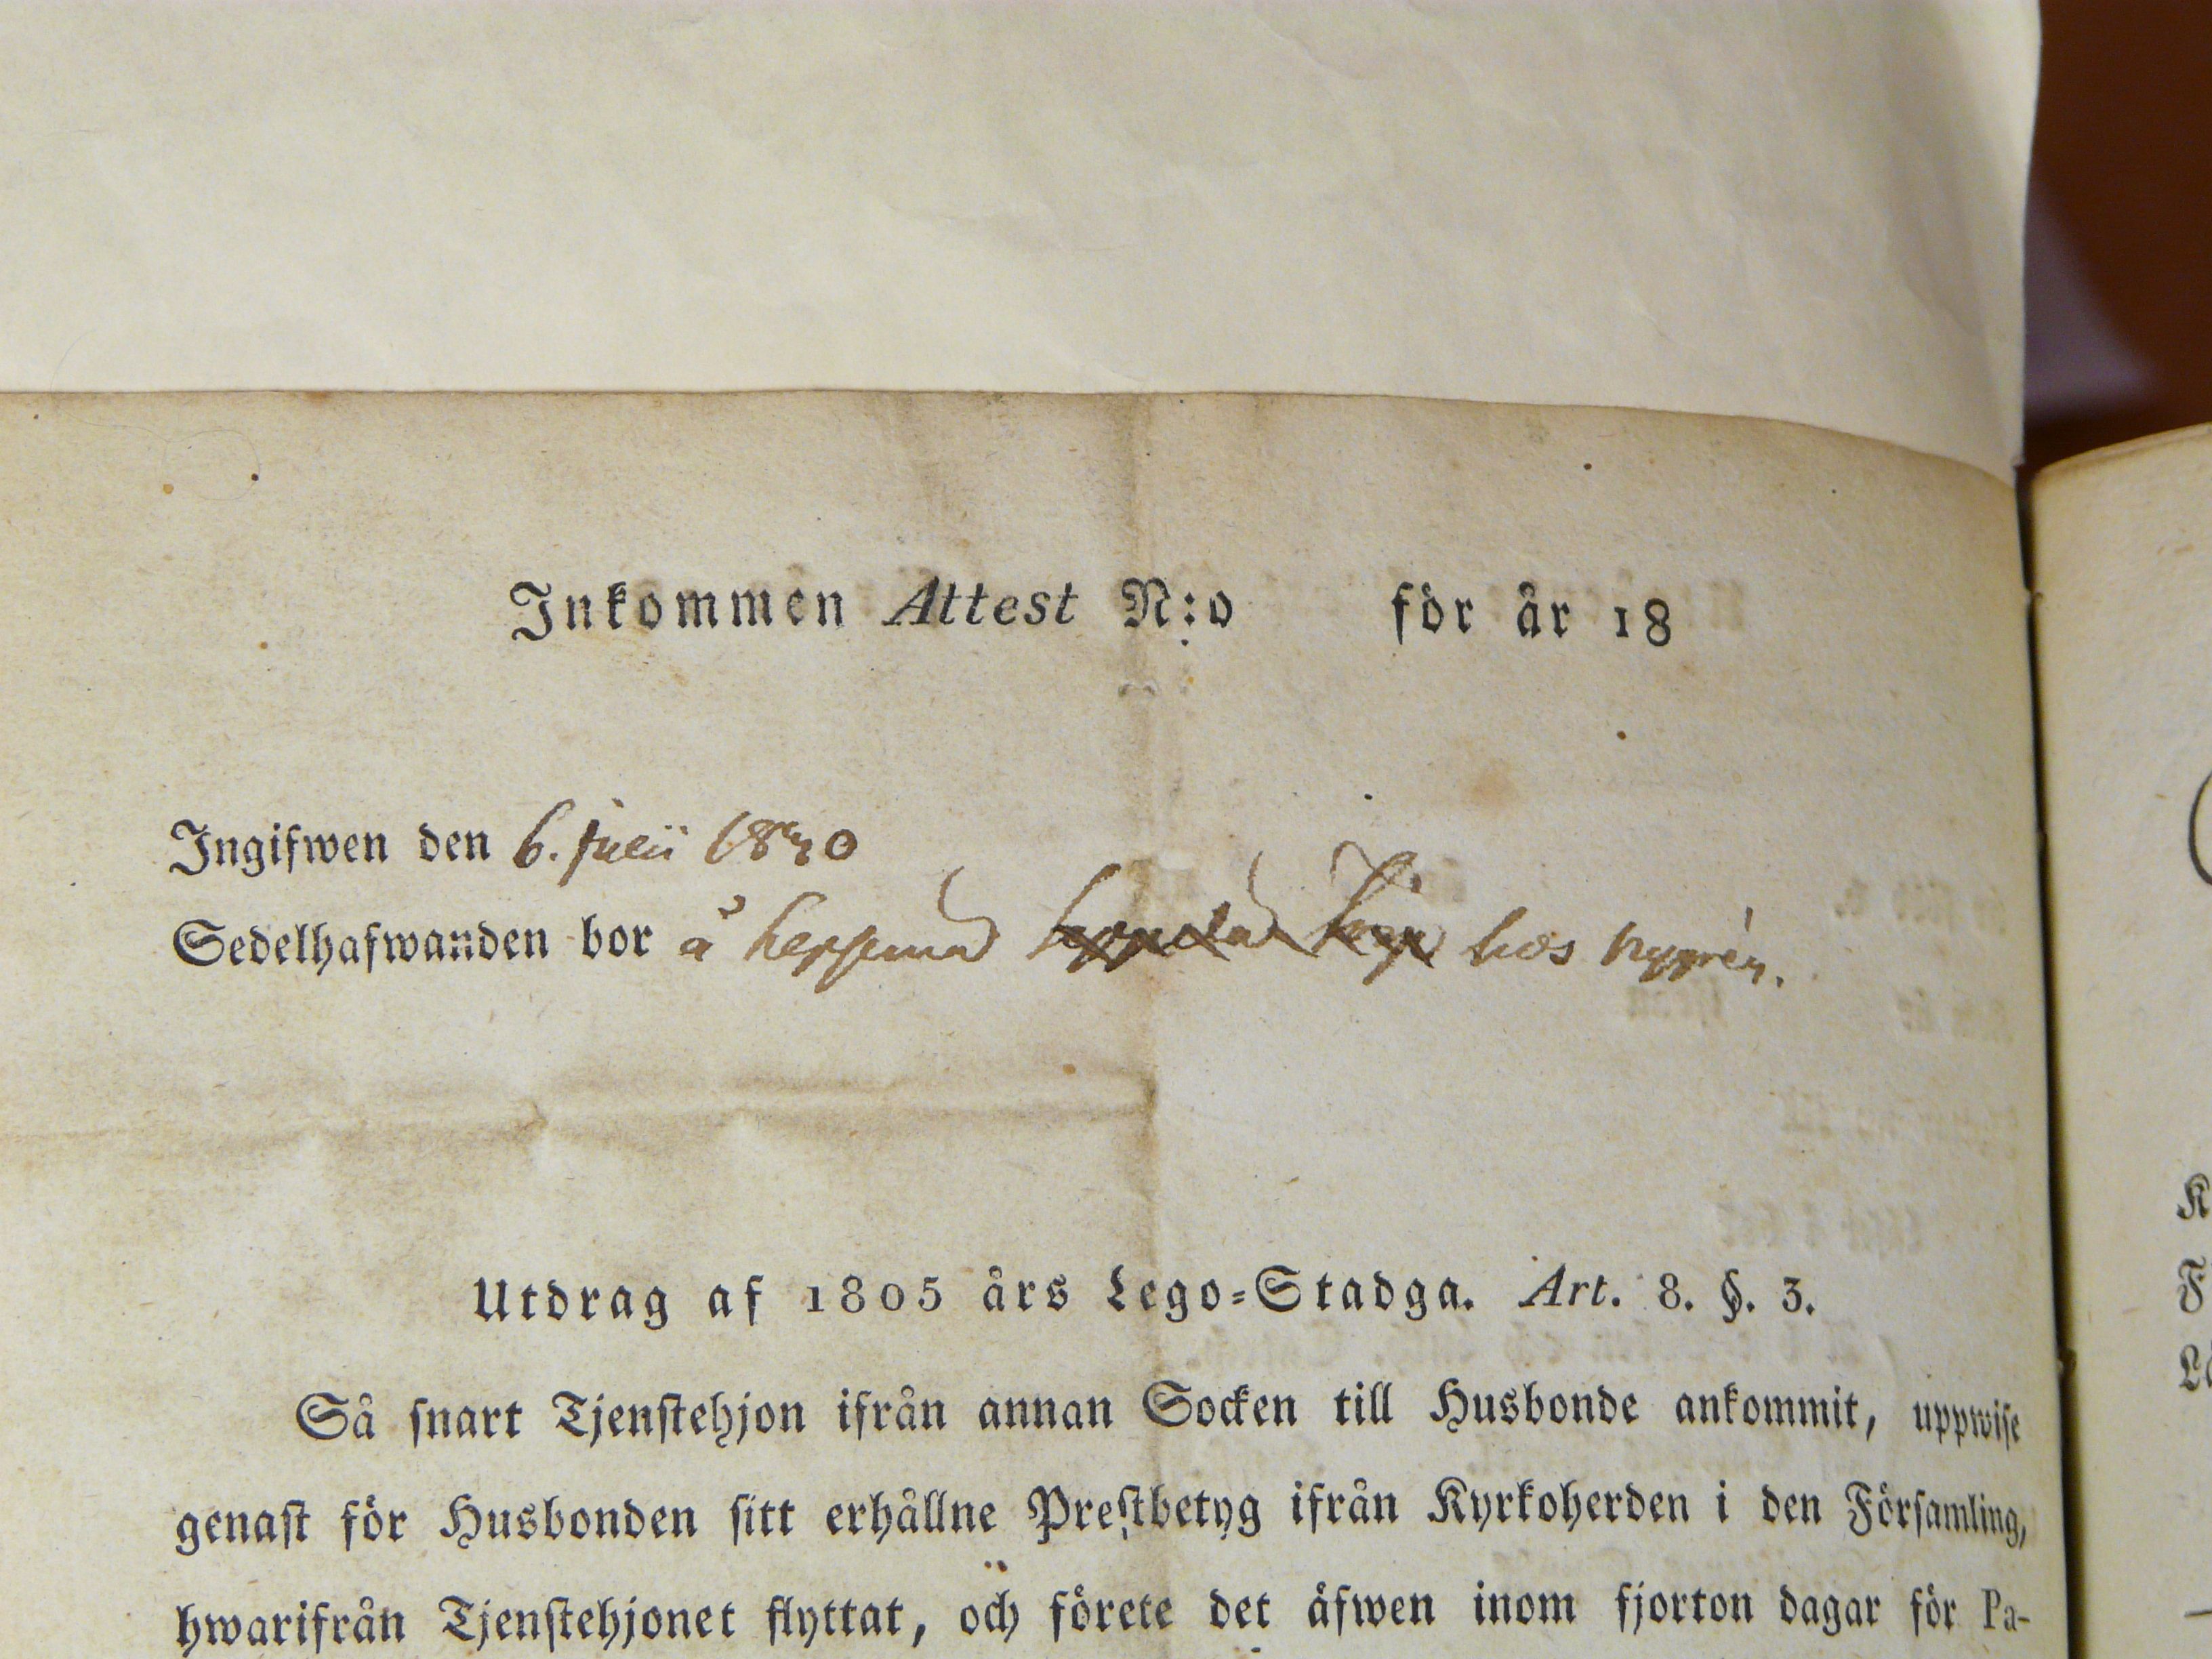 Inkommen Attest N:o för år 18
Ingifwen den 6. Julii 1840
Sedelhafwanden bor å hos Nygrén.
Utdrag af 1805 års Lego-Stadga. Art. 8. §. 3.
Så snart Tjenstehjon ifrån annan Socken till Husbonde ankommit, uppwise
genast för Husbonden sitt erhållne Prestbetyg ifrån Kyrkoherden i den Församling,
hwarifrån Tjenstehjonet flyttat, och förete det äfwen inom fjorton dagar för Pa-